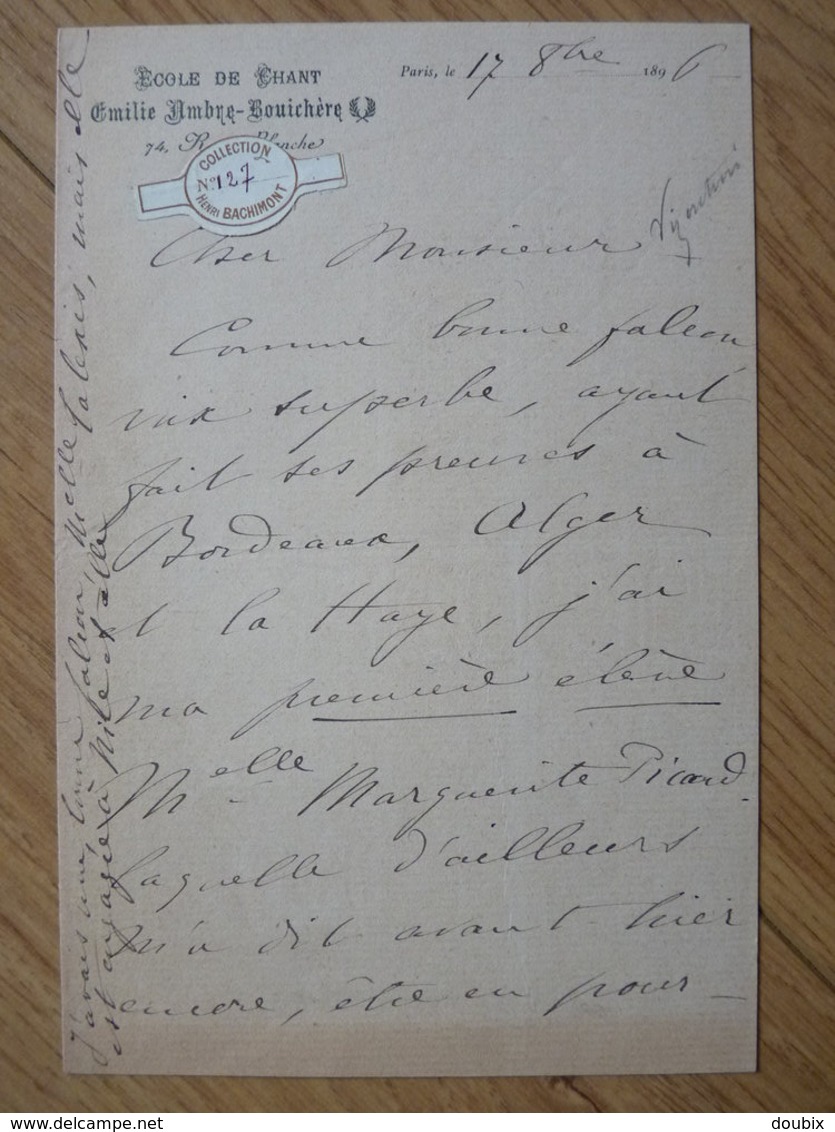 ECOLE DE CHANT
Emilie Ambre-Bouichère
74, R Blanche
Paris, le 17 8bre 1896
COLLECTION
No 127
HENRI BACHIMONT
Cher Monsieur
Comme bonne falcon
voix superbe, ayant
fait ses preuves à
Bordeaux, Alger
et la Haye, j'ai
ma première élève
Melle Marguerite Picard
laquelle d'ailleurs
m'a dit avant-hier
encore, être en pour-
J'avais une bonne falcon, Melle mais elle
est engagée à
© doubix